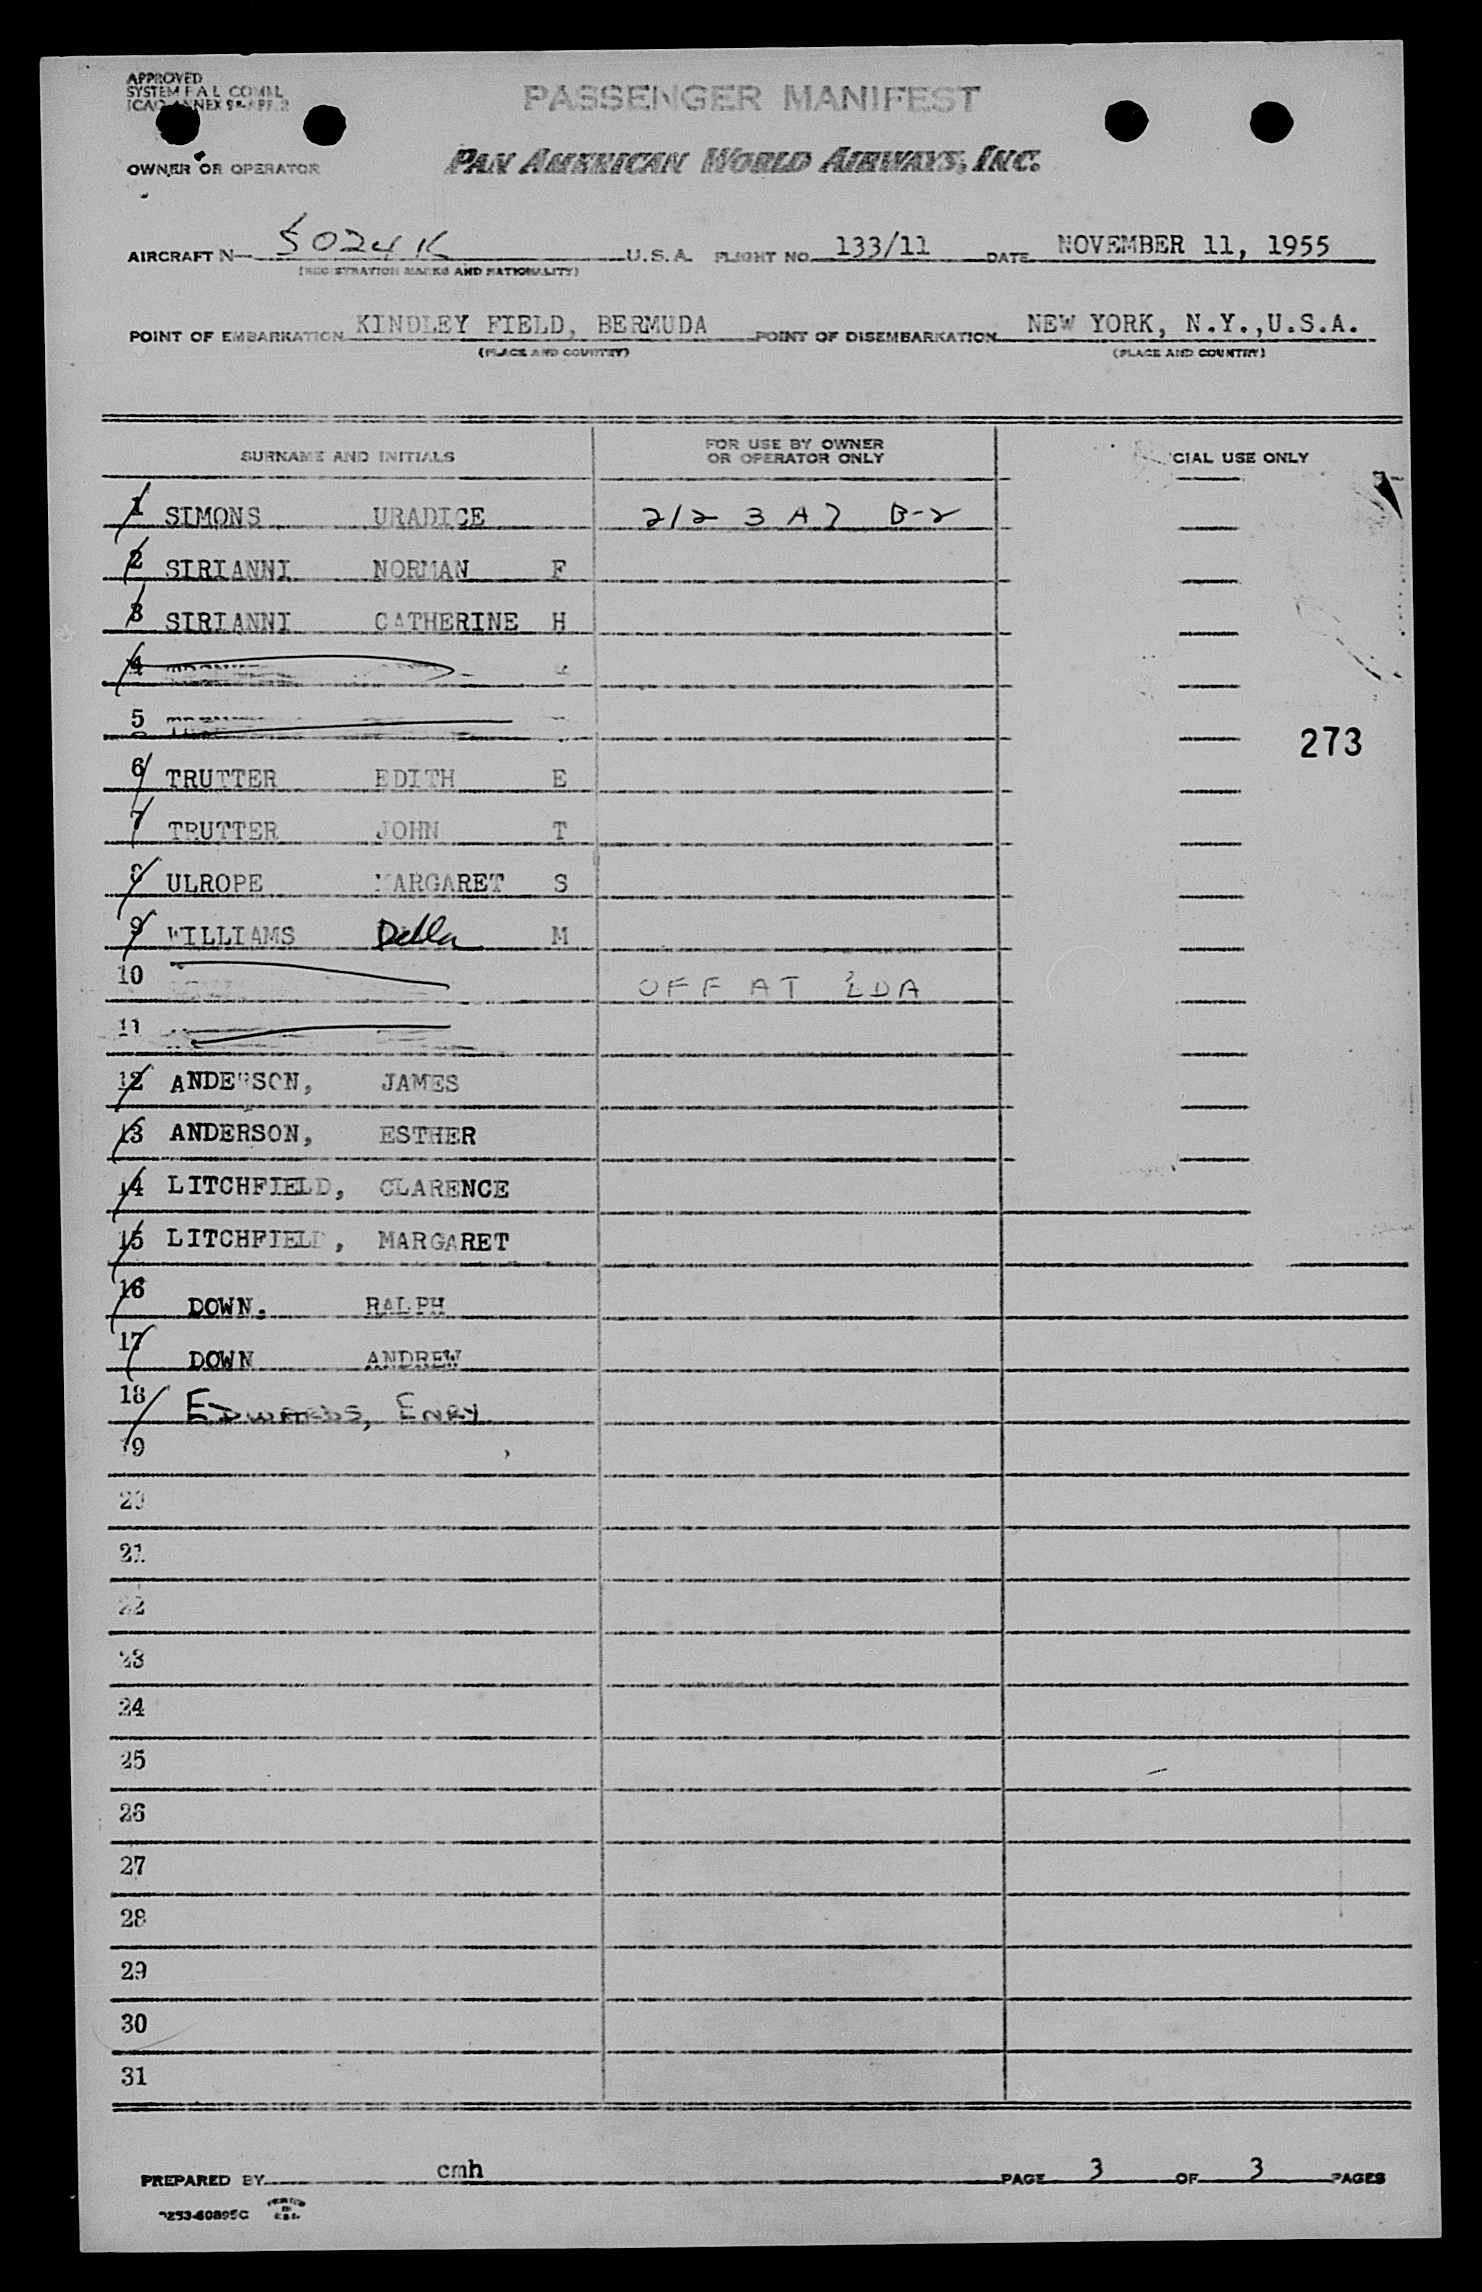 APPROVED
SYSTEM F A L COMM.
ICAO ANNEX 9
PASSENGER MANIFEST
OWNER OR OPERATOR PAN AMERICAN WORLD AIRWAYS, INC.
AIRCRAFT N- 5024K U.S.A. FLIGHT NO. 133/11 DATE NOVEMBER 11, 1955
(REGISTRATION MARKS AND NATIONALITY)
POINT OF EMBARKATION KINDLEY FIELD, BERMUDA POINT OF DISEMBARKATION NEW YORK, N.Y.,U.S.A.
(PLACE AND COUNTRY) (PLACE AND COUNTRY)
SURNAME AND INITIALS FOR USE BY OWNER OR OPERATOR ONLY CIAL USE ONLY
1 SIMONS URADICE 212 3 A7 B-2
2 SIRIANNI NORMAN F
3 SIRIANNI CATHERINE H
4
5
273
6 TRUTTER EDITH E
7 TRUTTER JOHN T
8 ULROPE MARGARET S
9 WILLIAMS Della M
10 OFF AT BDA
11
12 ANDERSON, JAMES
13 ANDERSON, ESTHER
14 LITCHFIELD, CLARENCE
15 LITCHFIELD, MARGARET
16 DOWN, RALPH
17 DOWN ANDREW
18 EDWARDS, ENRY
19
20
21
22
23
24
25
26
27
28
29
30
31
PREPARED BY cmh PAGE 3 OF 3 PAGES
PRINTED IN U.S.A.